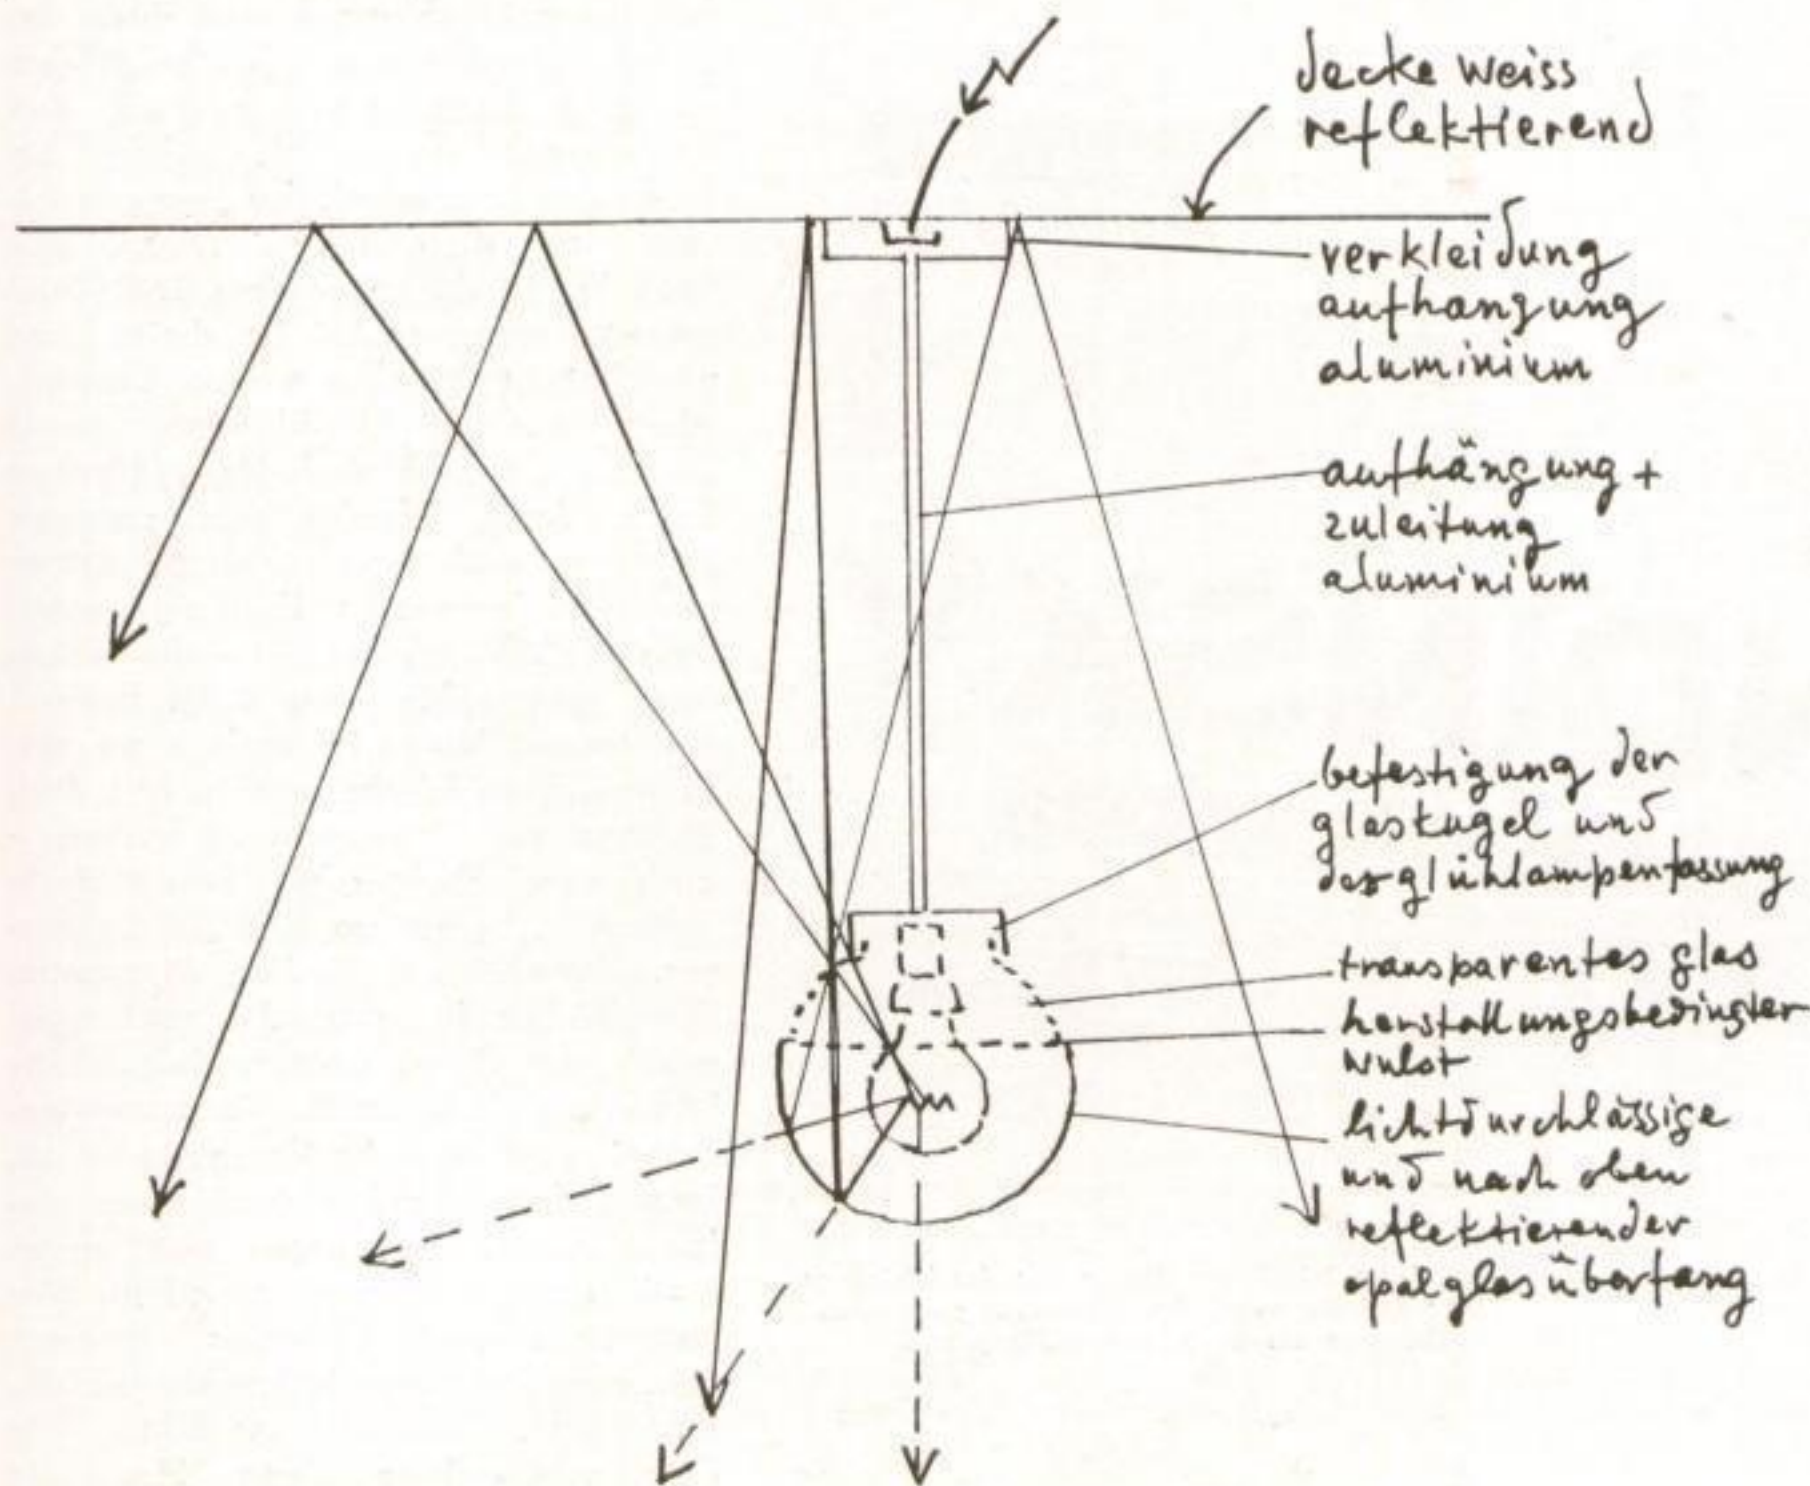 decke weiss
reflektierend
verkleidung
aufhangung
aluminium
aufhängung +
zuleitung
aluminium
befestigung der
glaskugel und
der glühlampenfassung
transparentes glas
herstellungsbedingter
wulst
lichtdurchlässige
und nach oben
reflektierender
opalglasüberfang